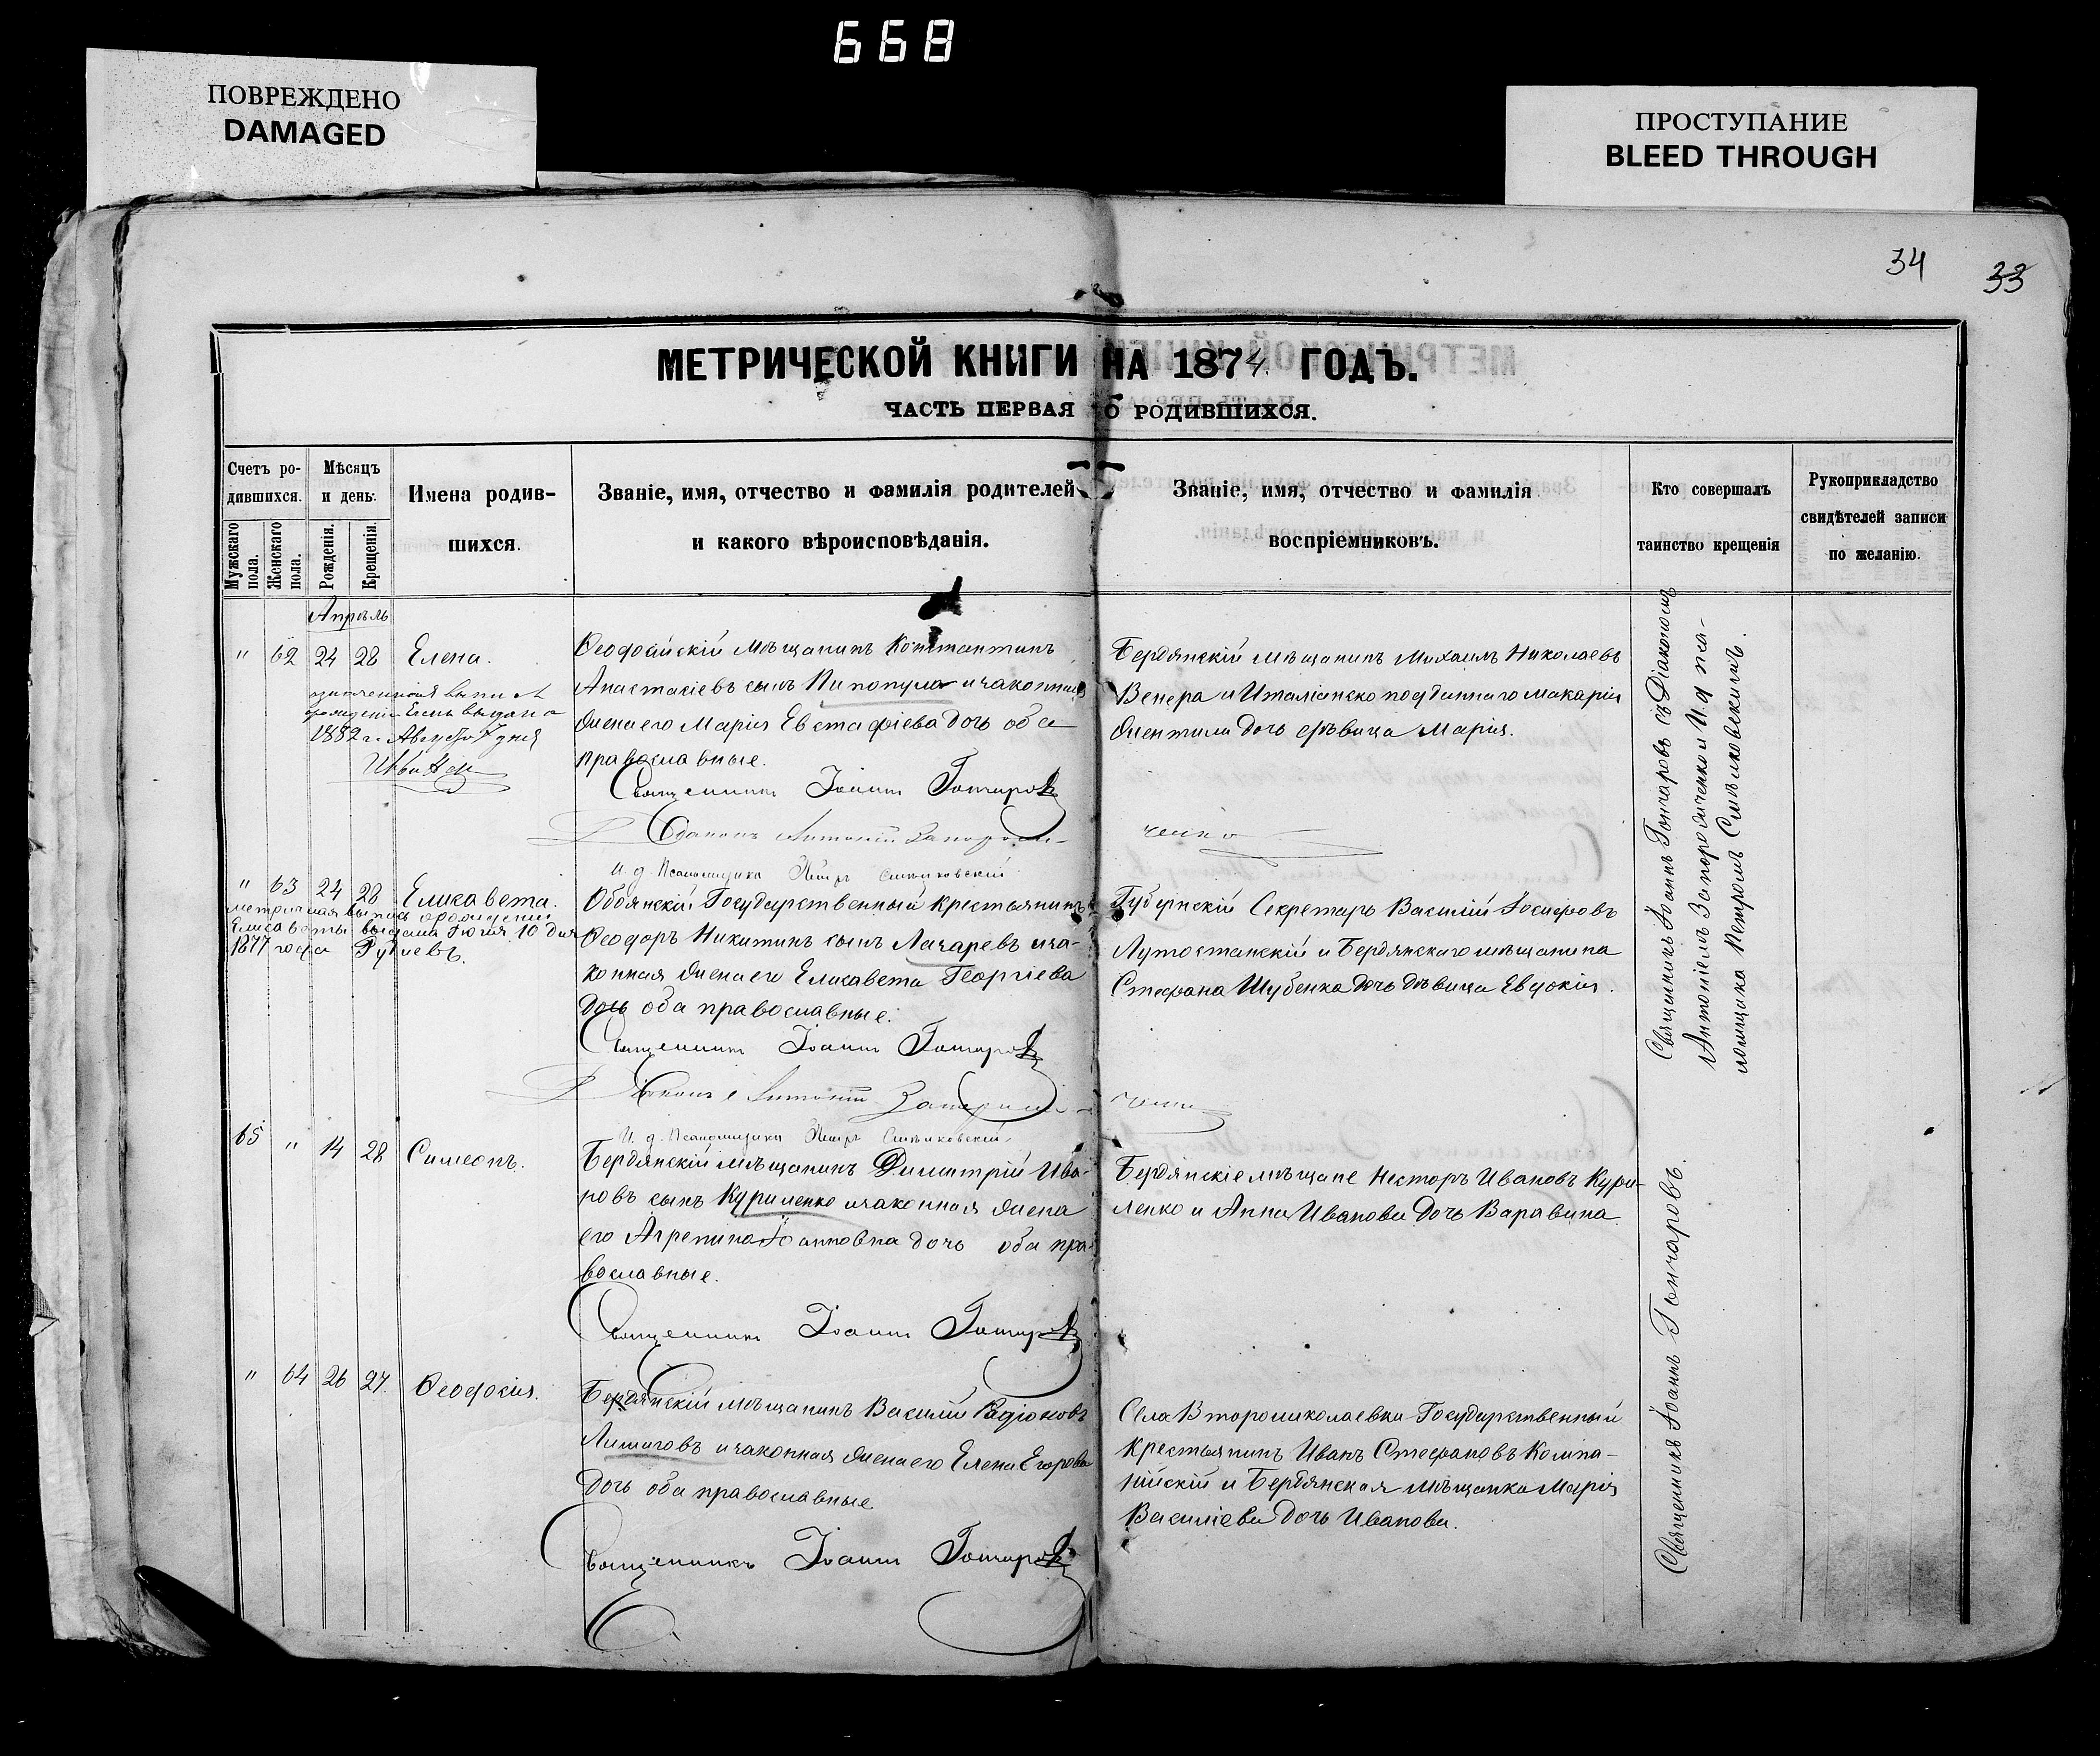 668
ПОВРЕЖДЕНО
DAMAGED
ПРОСТУПАНИЕ
BLEED THROUGH
34
33
МЕТРИЧЕСКОЙ КНИГИ НА 1874 ГОДЪ.
ЧАСТЬ ПЕРВАЯ О РОДИВШИХСЯ.
Счетъ ро-
дившихся.
Мужскаго пола.
Женскаго пола.
Мѣсяцъ
и день.
Рожденія.
Крещенія.
Имена родив-
шихся.
Званіе, имя, отчество и фамилія родителей
и какого вѣроисповѣданія.
Званіе, имя, отчество и фамилія
воспріемниковъ.
Кто совершалъ
таинство крещенія
Рукоприкладство
свидѣтелей записи
по желанію.
Апрѣль
" 62 24 28 Елена.
1882 г. Августа 7 дня
Ѳеодосійскій мѣщанинъ Константинъ
Анастасіевъ сынъ и законная
жена его Марія Евстафіева дочь оба
православные.
Священникъ Іоаннъ Гончаровъ
Діаконъ Антоній Запорож-
ченко
И. д. Псаломщика Петръ Сѣнковскій
Бердянскій мѣщанинъ Михаилъ Николаевъ
Венера и Италіанско подданнаго Макарія
дочь дѣвица Марія.
" 63 24 28 Елисавета.
метричная выпись о рожденіи
Елисаветы выдана Іюня 10 дня
1877 года
Обоянскій Государственный крестьянинъ
Ѳеодоръ Никитинъ сынъ Лихаревъ и за-
конная жена его Елисавета Георгіева
дочь оба православные.
Священникъ Іоаннъ Гончаровъ
Діаконъ Антоній Запорож-
ченко
И. д. Псаломщика Петръ Сѣнковскій
Губернскій Секретарь Василій Іосифовъ
Лутостанскій и Бердянскаго мѣщанина
Стефана Шубенка дочь дѣвица Евдокія.
65 " 14 28 Симеонъ.
Бердянскій мѣщанинъ Димитрій Ива-
новъ сынъ Куриленко и законная жена
его Агрепина Іоанновна дочь оба пра-
вославные.
Священникъ Іоаннъ Гончаровъ
Бердянскіе мѣщане Несторъ Ивановъ Кури-
ленко и Анна Иванова дочь Варавина.
" 64 26 27. Ѳеодосія.
Бердянскій мѣщанинъ Василій Радіоновъ
и законная жена его Елена Егорова
дочь оба православные
Священникъ Іоаннъ Гончаровъ
Села Второниколаевки Государственный
крестьянинъ Иванъ Стефановъ Компа-
нійскій и Бердянская мѣщанка Марія
Василіева дочь Иванова.
Священникъ Іоаннъ Гончаровъ съ Діакономъ
Антоніемъ Запорожченко и И. д. пса-
ломщика Петромъ Сѣнковскимъ.
Священникъ Іоаннъ Гончаровъ.